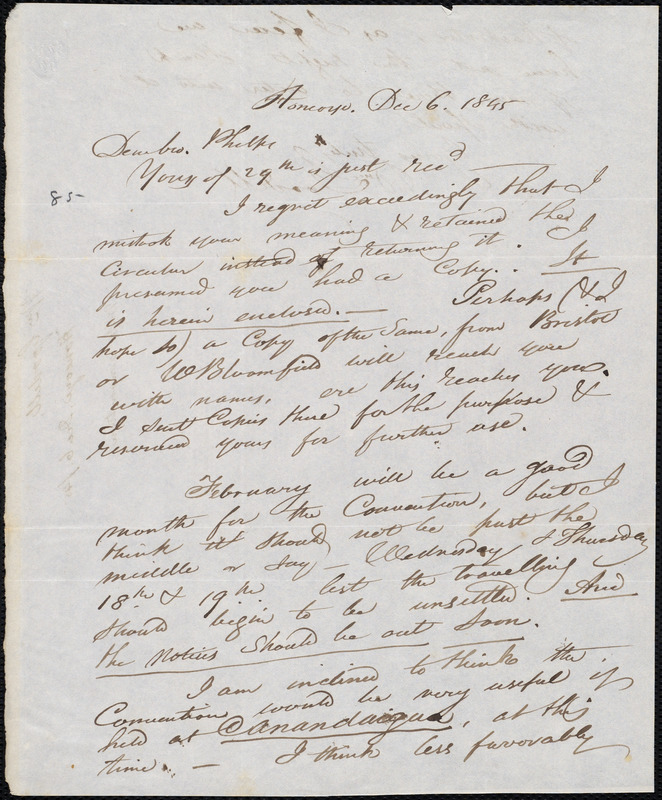 Honeoye. Dec 6. 1845
Dear bro. Phelps
Yours of 29th is just rec'd
85-
I regret exceedingly that I
mistook your meaning & retained the
circular instead of returning it. I
presumed you had a Copy. It
is herein enclosed. — Perhaps (& I
hope so) a Copy of the Same, from Bristol
or W Bloomfield will reach you
with names, ere this reaches you.
I sent Copies there for the purpose &
reserved yours for further use.
February will be a good
month for the Convention, but I
think it should not be past the
middle or say — Wednesday & Thursday
18th & 19th lest the travelling
should begin to be unsettled. And
the notices should be out soon.
I am inclined to think the
Convention would be very useful if
held at Canandaigua, at this
time. — I think less favorably